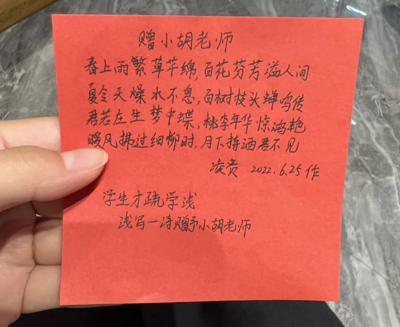 赠小胡老师
春上雨繁草芊绵,百花芬芳溢人间
夏令天燥水不息,百树枝头蝉鸣传
君若庄生梦中蝶,桃李年华惊鸿艳
暖风拂过细柳时,月下挥洒君不见
凌贵 2022.6.25作
学生才疏学浅
浅写一诗赠予小胡老师